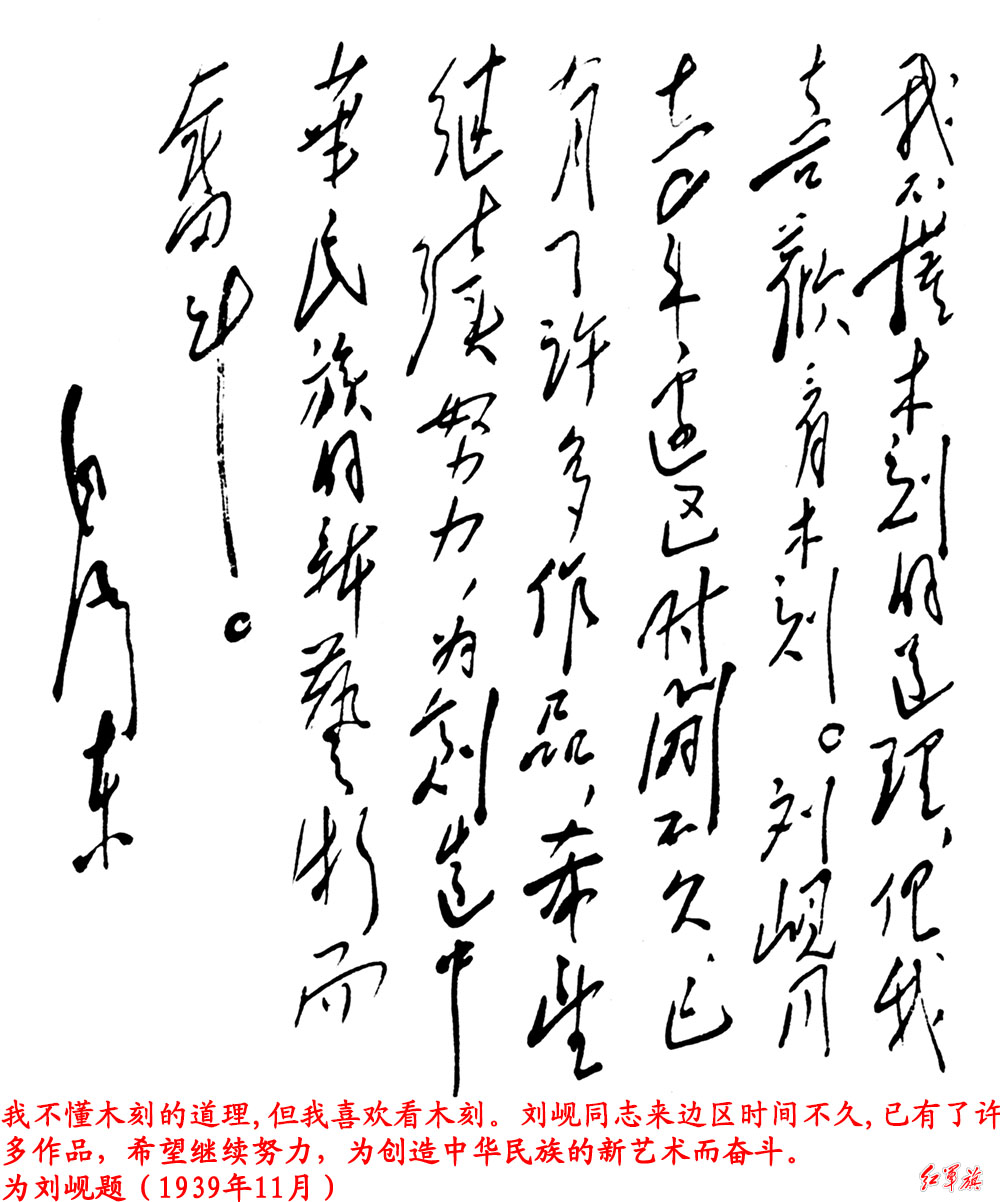 我不懂木刻的道理,但我
喜歡看木刻。刘峴同
志来边区时間不久,已
有了许多作品,希望
继续努力,为创造中
華民族的新藝術而
奮斗——。
毛泽东
我不懂木刻的道理,但我喜欢看木刻。刘岘同志来边区时间不久,已有了许
多作品，希望继续努力，为创造中华民族的新艺术而奋斗。
为刘岘题（1939年11月）
红军旗